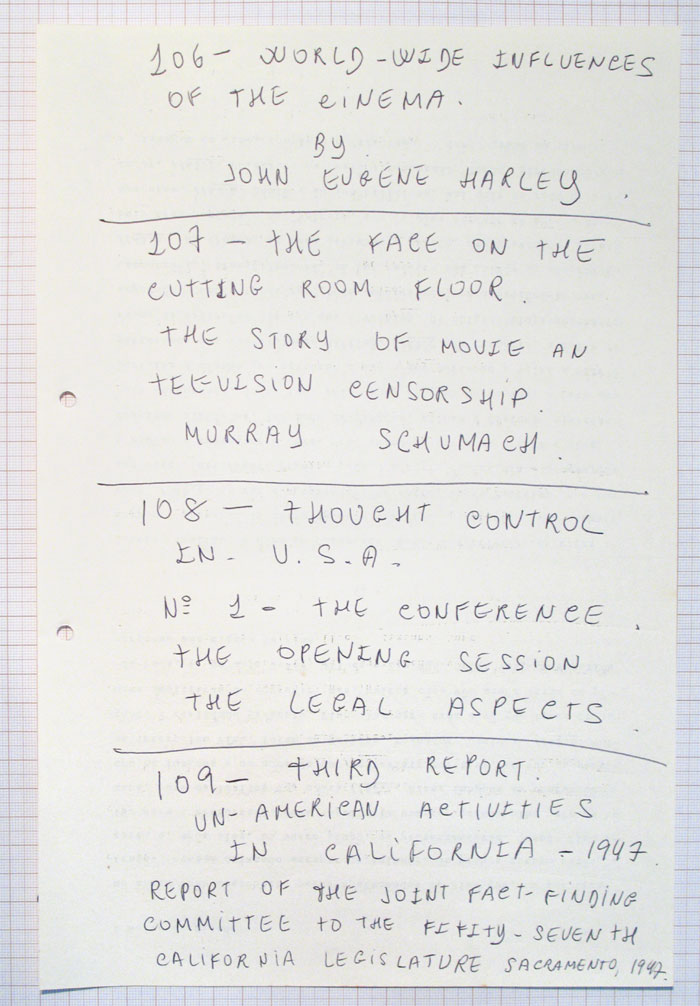 106 - WORLD-WIDE INFLUENCES
OF THE CINEMA.
BY
JOHN EUGENE HARLEY.
107 - THE FACE ON THE
CUTTING ROOM FLOOR.
THE STORY OF MOVIE AN
TELEVISION CENSORSHIP.
MURRAY SCHUMACH.
108 - THOUGHT CONTROL
IN - U.S.A.
Nº 1 - THE CONFERENCE.
THE OPENING SESSION
THE LEGAL ASPECTS.
109 - THIRD REPORT.
UN-AMERICAN ACTIVITIES
IN CALIFORNIA - 1947.
REPORT OF THE JOINT FACT-FINDING
COMMITTEE TO THE FIFITY-SEVENTH
CALIFORNIA LEGISLATURE SACRAMENTO, 1947.